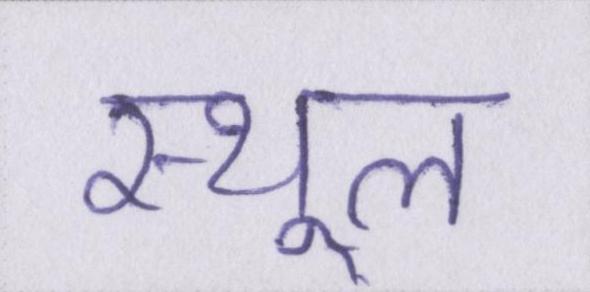 स्थूल